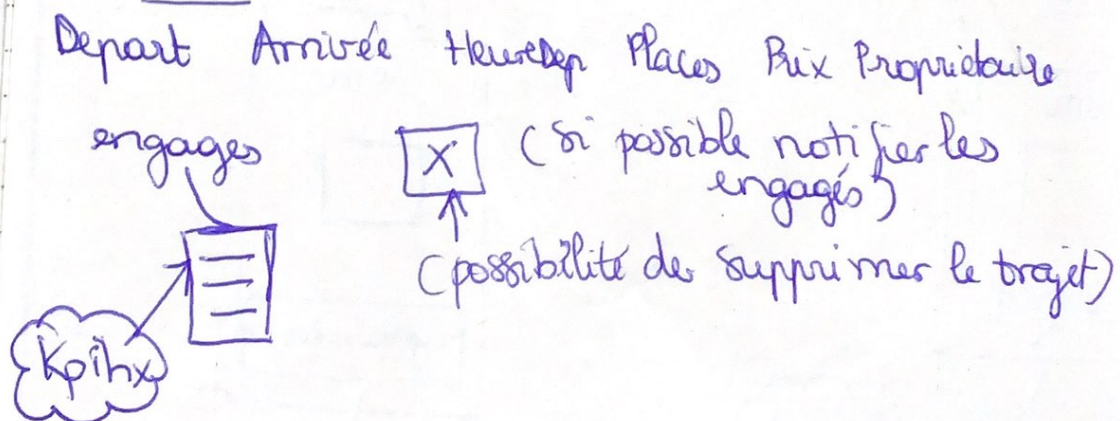 Depart Arrivée HeureDep Places Prix Propriétaire
engages
X (Si possible notifier les
engagés)
(possibilité de supprimer le trajet)
Kpihx